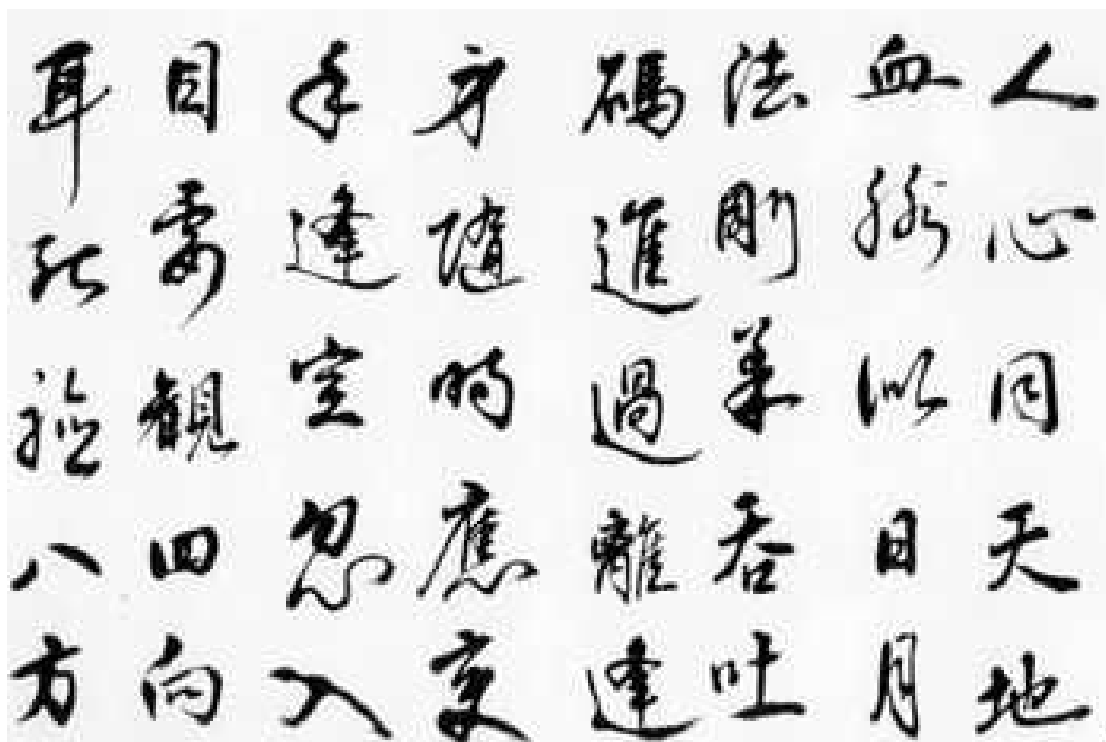 人心同天地
血脈似日月
法剛柔吞吐
碼進過離逢
身隨時應変
手逢空忽入
目要観四向
耳能聴八方